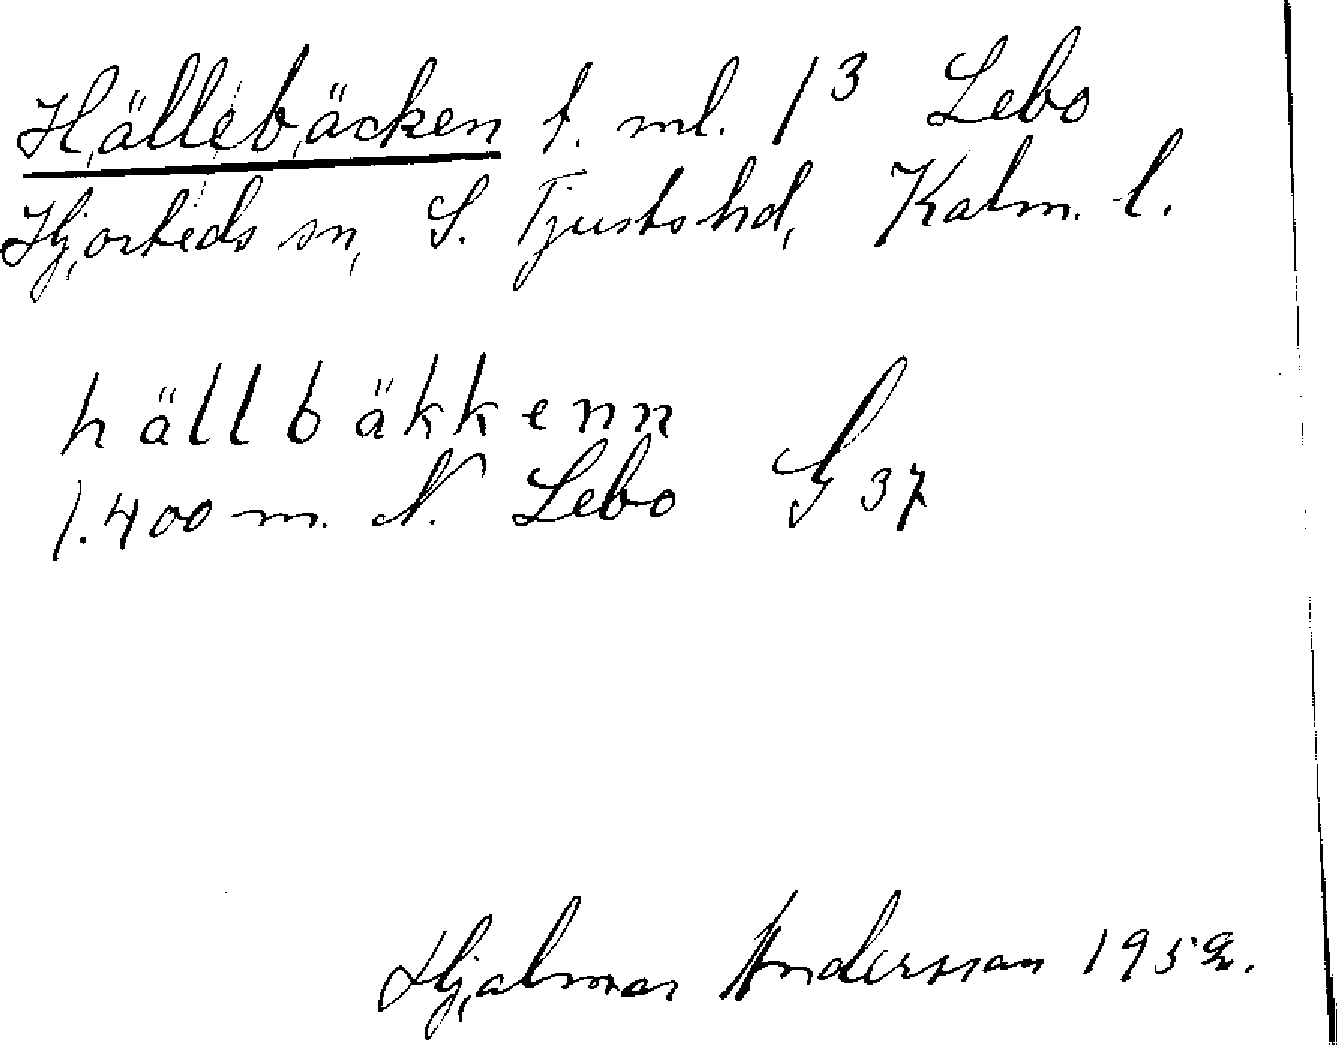 Hällebäcken t. ml. 1³ Lebo
Hjorteds sn, S. Tjusts hd, Kalm. l.
hällbäkkenn
1.400 m. N. Lebo G 37
Hjalmar Andersson 1952.